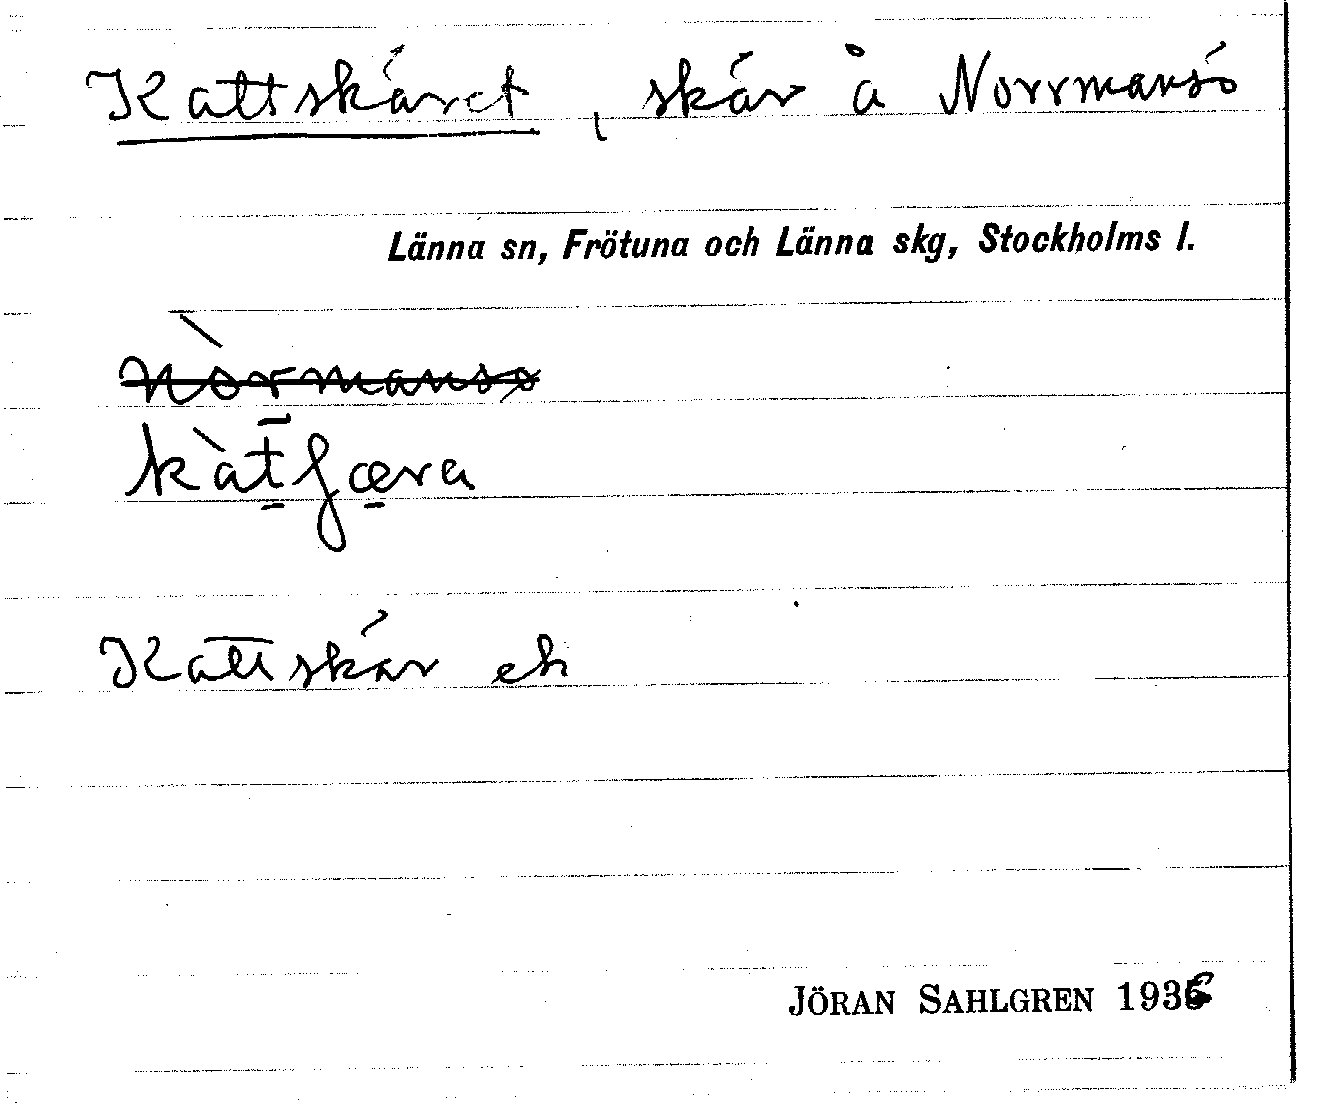 Kattskäret, skär å Norrmansö
Länna sn, Frötuna och Länna skg, Stockholms l.
kàt̄ʃæra
Kattskär ek
JÖRAN SAHLGREN 1936